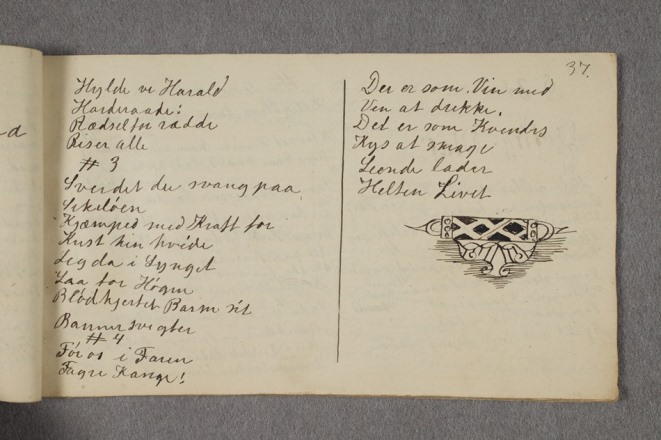 37.
Hylde vi Harald
Harderaade!
Rædsel for rædde
Riser alle
# 3
Sverdet du svang paa
Sikeløen
Kjæmped med Kraft for
Kust hin hvide
Leg da i Lynget
Laa for Høgne
Blødhjertet Barm sit
Banner svigter
# 4
Før os i Faren
Fagre Konge!
Der er som Vin med
Ven at drikke.
Det er som Kvendes
Kys at smage
Leende lader
Helten Livet